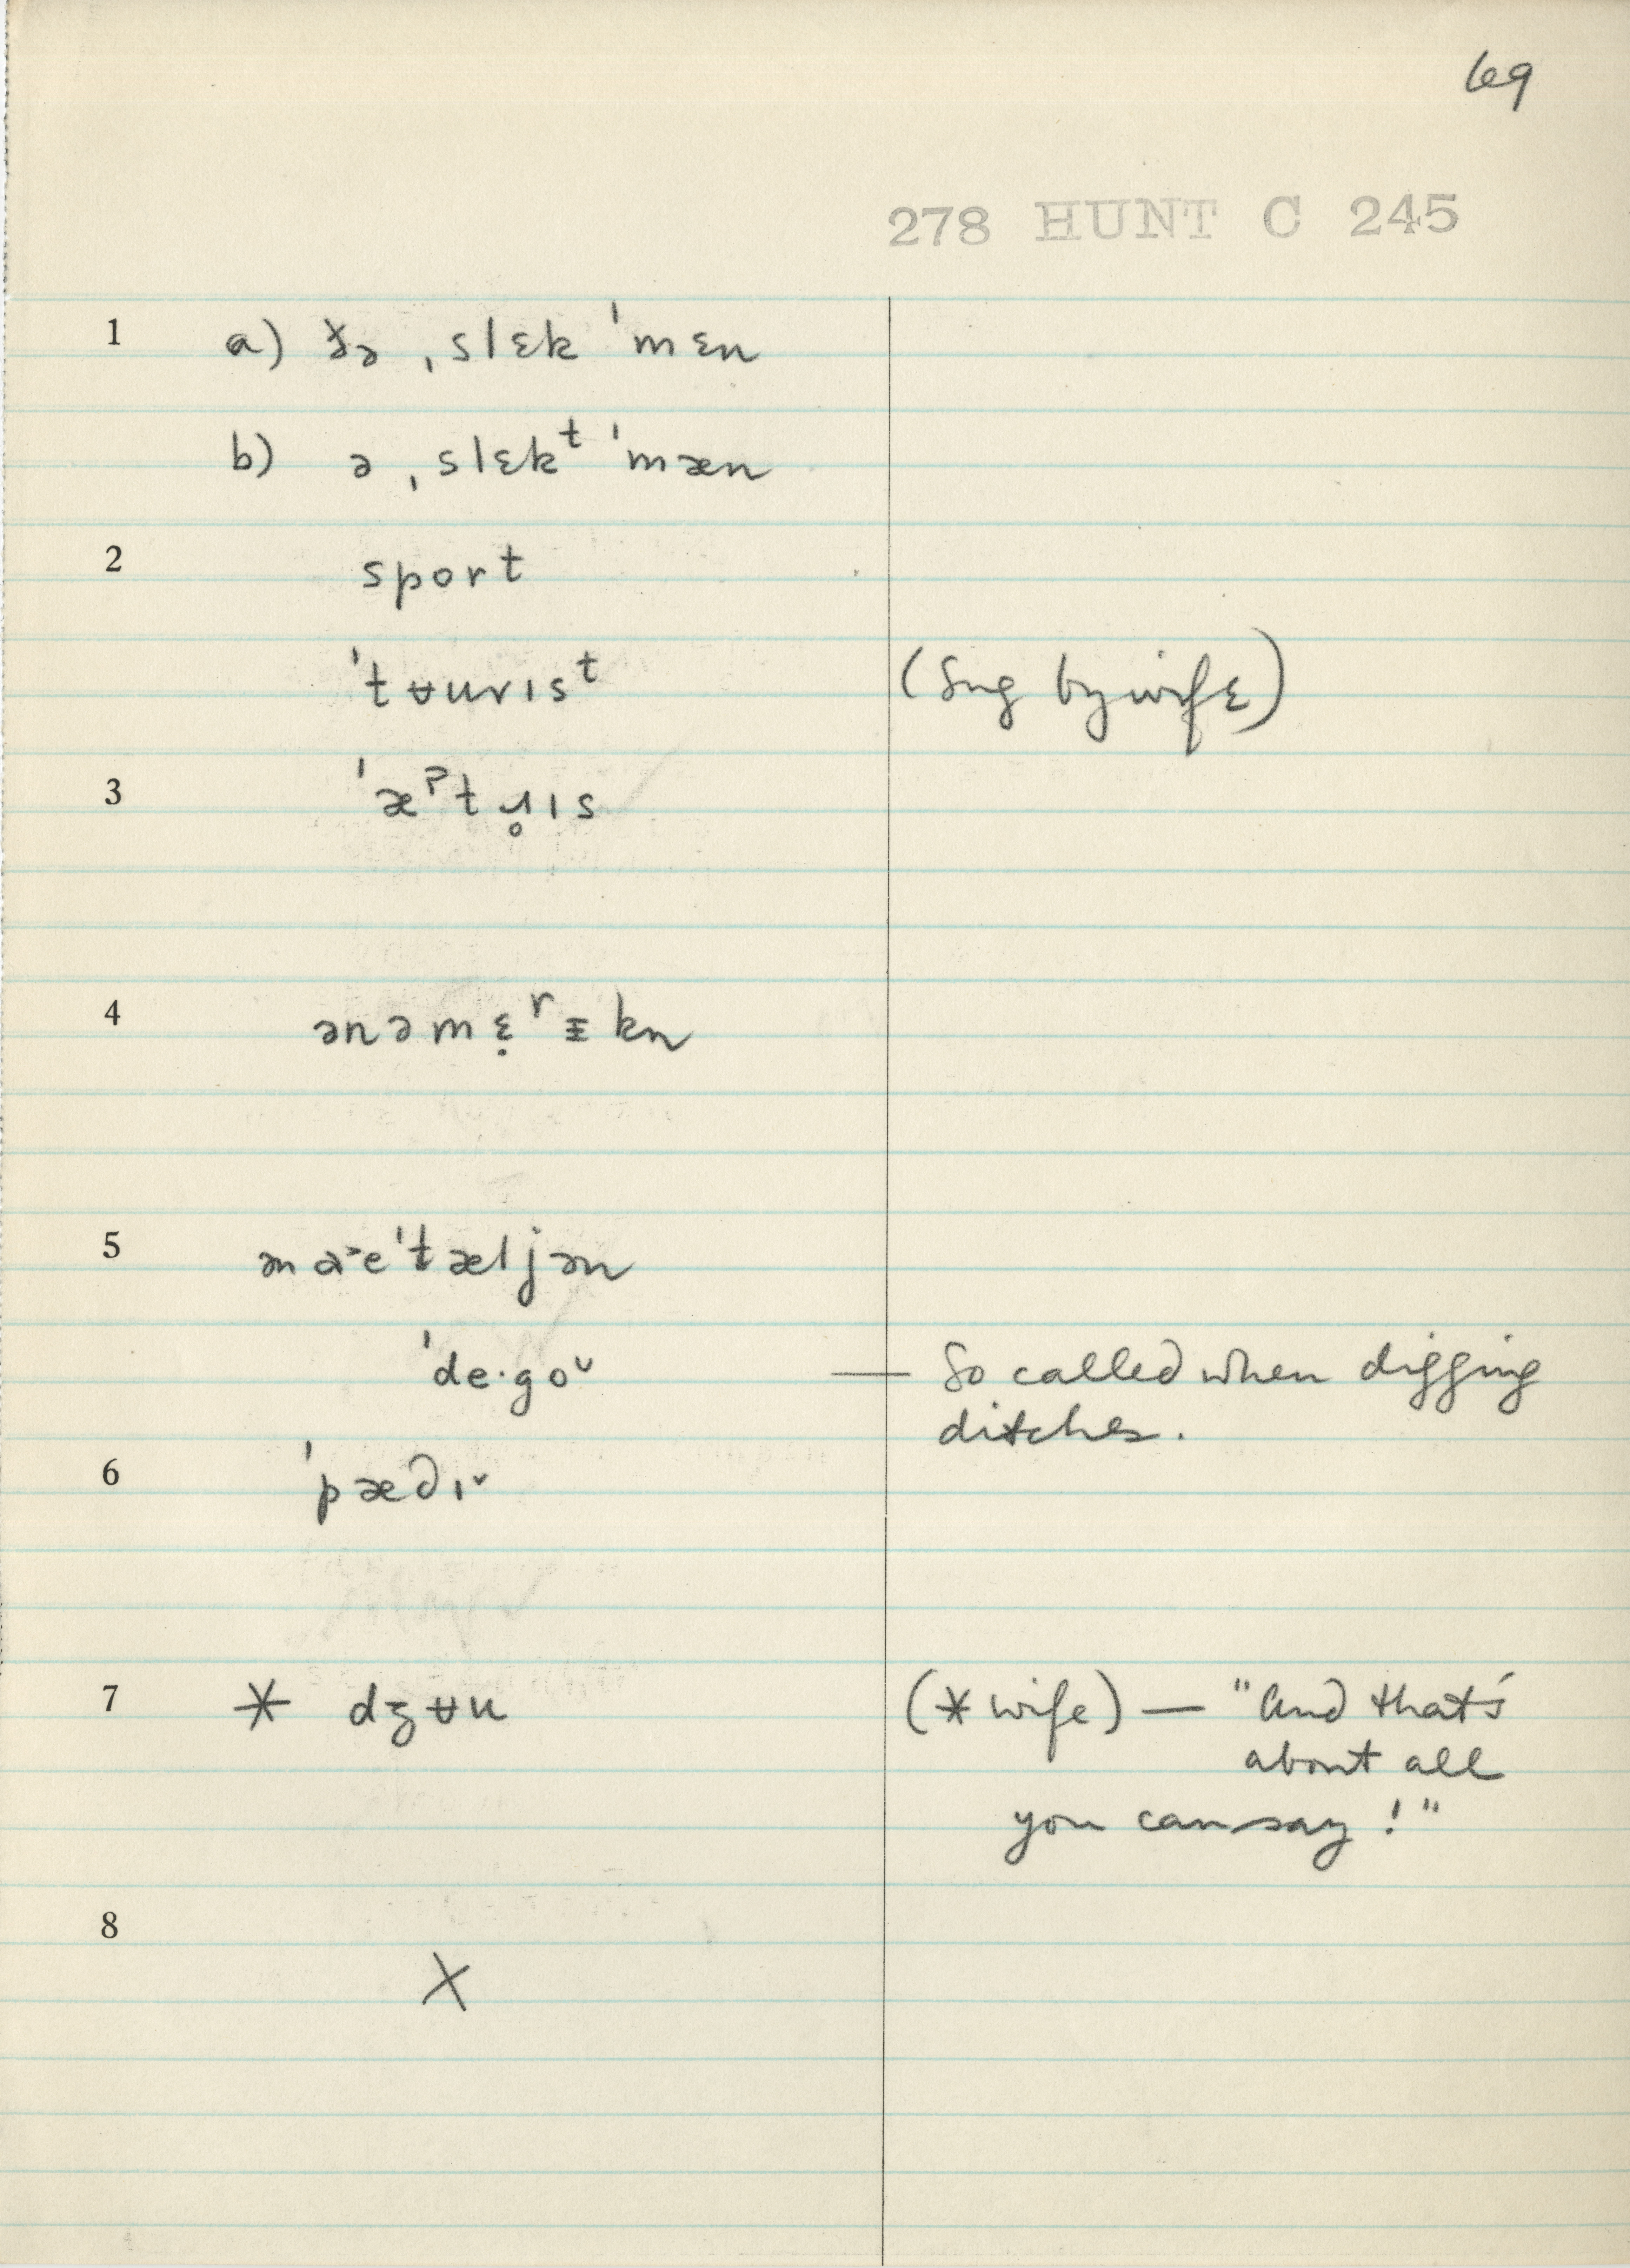 69
278 HUNT C 245
1 a) ðə ˌslɛk ˈmɛn
b) ə ˌslɛkᵗ ˈmæn
2 sport
ˈtʉurɪsᵗ (Sug by wife)
3 ˈæᵖtɹ̥ɪs
4 ənəmɛ̣ʳᵻkn
5 ən ɑ˃eˈtæljən
ˈde·goᵕ — So called when digging
ditches.
6 ˈpæ∂ɪˇ
7 * dʒʉu (* wife) — "And that's
about all
you can say!"
8
X